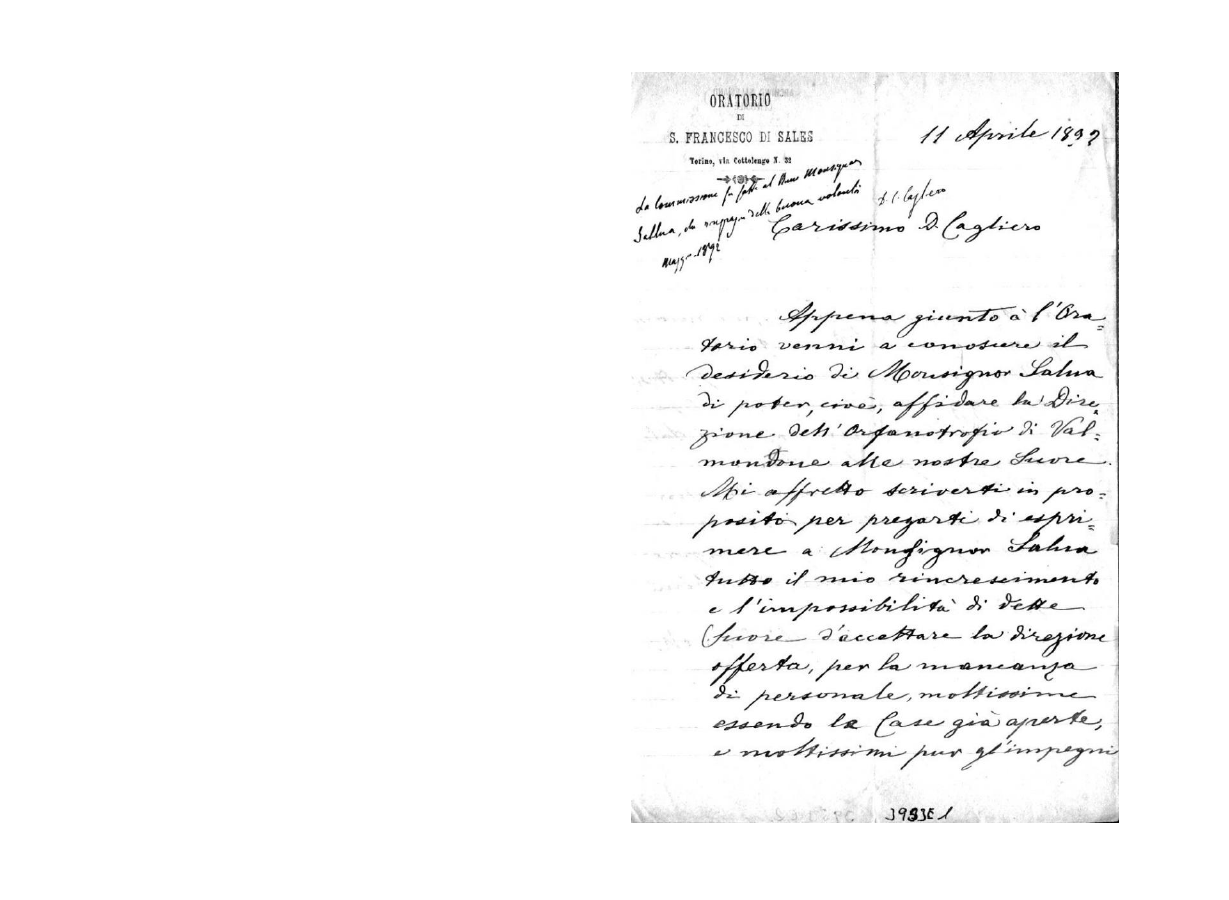 ORATORIO
DI
S. FRANCESCO DI SALES
Torino, via Cottolengo N. 32
11 Aprile 1892
La Commissione fu fatta al Monsignor
della buona volontà
Maggio 1892
D. C. Cagliero
Carissimo D. Cagliero
Appena giunto à l'Ora=
torio venni a conoscere il
desiderio di Monsignor Salua
di poter, cioè, affidare la Dire=
zione dell'Orfanotrofio di Val=
mondone alle nostre Suore.
Mi affretto scriverti in pro=
posito per pregarti di espri=
mere a Monsignor Salua
tutto il mio rincrescimento
e l'impossibilità di dette
Suore d'accettare la direzione
offerta, per la mancanza
di personale, moltissime
essendo le Case già aperte,
e moltissimi pur gl'impegni